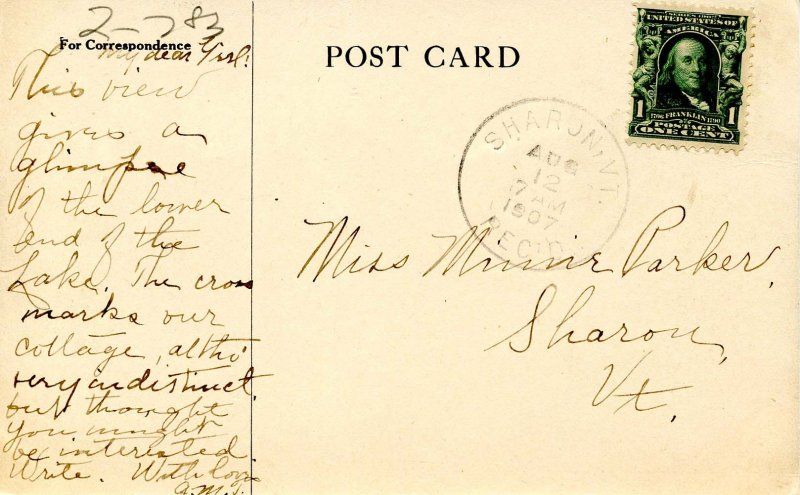 2-783
For Correspondence
POST CARD
SERIES 1902
UNITED STATES OF
AMERICA
1 1706 FRANKLIN 1790 1
POSTAGE
ONE CENT
SHARON, VT.
AUG
12
7 AM
1907
REC'D.
My dear Girl:
This view
gives a
glimpse
of the lower
end of the
Lake. The cross
marks our
cottage, altho'
very indistinct.
but thought
you might
be interested
Write. With love
Miss Minnie Parker,
Sharon,
Vt.